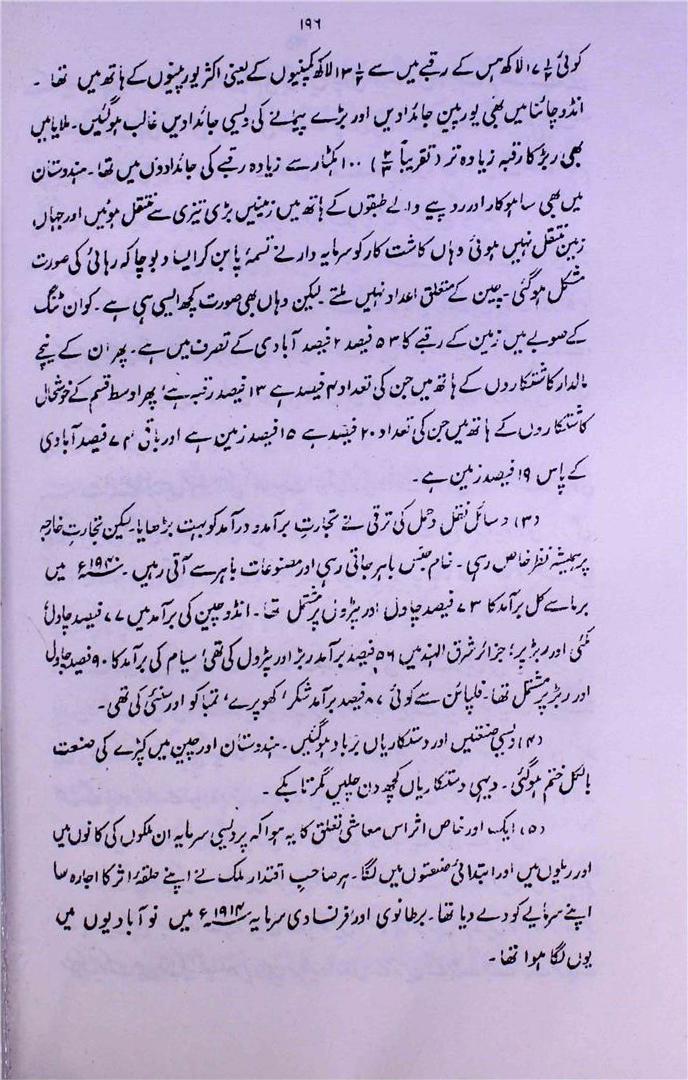 ۱۹۶
کوئی ۱۷ ۱/۲ لاکھ جس کے رقبے میں سے ۱۳ ۱/۲ لاکھ کمپنیوں کے یعنی اکثر یورپینوں کے ہاتھ میں تھا ۔
انڈو چائنا میں بھی یورپین جائدادیں اور بڑے پیمانے کی دیسی جائدادیں غالب ہوگئیں۔ ملایا میں
بھی ربڑ کا رقبہ زیادہ تر (تقریباً ۲/۳) ۱۰۰ ایکڑ سے زیادہ رقبے کی جائدادوں میں تھا۔ ہندوستان
میں بھی ساہوکار اور روپیے والے طبقوں کے ہاتھ میں زمینیں بڑی تیزی سے منتقل ہوئیں اور جہاں
زمین منتقل نہیں ہوئی وہاں کاشت کار کو سرمایہ دار نے تسمۂ پا بن کر ایسا دبوچا کہ رہائی کی صورت
مشکل ہوگئی۔ چین کے متعلق اعداد نہیں ملتے لیکن وہاں بھی صورت کچھ ایسی ہی ہے۔ کوان ٹنگ
کے صوبے میں زمین کے رقبے کا ۵۳ فیصد ۲ فیصد آبادی کے تصرف میں ہے۔ پھر ان کے نیچے
مالدار کاشتکاروں کے ہاتھ میں جن کی تعداد ۴ فیصد ہے ۱۳ فیصد رقبہ ہے، پھر اوسط قسم کے خوشحال
کاشتکاروں کے ہاتھ میں جن کی تعداد ۲۰ فیصد ہے ۱۵ فیصد زمین ہے اور باقی ۷۴ فیصد آبادی
کے پاس ۱۹ فیصد زمین ہے ۔
(۳) وسائل نقل و حمل کی ترقی نے تجارت برآمد و درآمد کو بہت بڑھایا۔ لیکن تجارت خارجہ
پر ہمیشہ نظر خاص رہی۔ خام جنس باہر جاتی رہی اور مصنوعات باہر سے آتی رہیں۔ ۱۹۴۰ء میں
برما سے کل برآمد کا ۷۳ فیصد چاول اور پٹرول پر مشتمل تھا۔ انڈو چین کی برآمد میں ۷۷ فیصد چاول،
مکئی اور ربڑ پر؛ جزائر شرق الہند میں ۵۶ فیصد برآمد ربڑ اور پٹرول کی تھی، سیام کی برآمد کا ۹۰ فیصد چاول
اور ربڑ پر مشتمل تھا۔ فلپائن سے کوئی ۸۷ فیصد برآمد شکر، کھوپرے، تمباکو اور سنئی کی تھی۔
(۴) دیسی صنعتیں اور دستکاریاں برباد ہوگئیں۔ ہندوستان اور چین میں کپڑے کی صنعت
بالکل ختم ہوگئی۔ دیہی دستکاریاں کچھ دن چلیں مگر تا بکے ۔
(۵) ایک اور خاص اثر اس معاشی تعلق کا یہ ہوا کہ پردیسی سرمایہ ان ملکوں کی کانوں میں
اور ریلوں میں اور ابتدائی صنعتوں میں لگا۔ ہر صاحب اقتدار ملک نے اپنے حلقۂ اثر کا اجارہ سا
اپنے سرمایے کو دے دیا تھا۔ برطانوی اور فرنساوی سرمایہ ۱۹۱۴ء میں نو آبادیوں میں
یوں لگا ہوا تھا۔